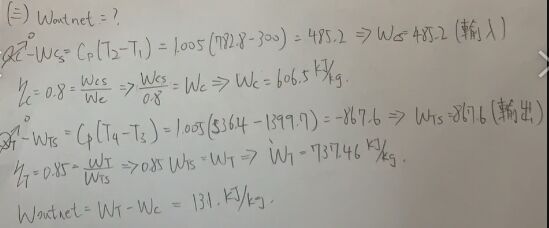 (三) Woutnet = ?
q̸c⁰ - Wcs = Cp(T2-T1) = 1.005(782.8-300) = 485.2 ⇒ Wcs = 485.2 (輸入)
ηc = 0.8 = Wcs/Wc ⇒ Wcs/0.8 = Wc ⇒ Wc = 606.5 kJ/kg.
q̸T⁰ - WTS = Cp(T4-T3) = 1.005(536.4-1399.7) = -867.6 ⇒ WTS = 867.6 (輸出)
ηT = 0.85 = WT/WTS ⇒ 0.85 WTS = WT ⇒ WT = 737.46 kJ/kg.
Woutnet = WT - Wc = 131. kJ/kg.